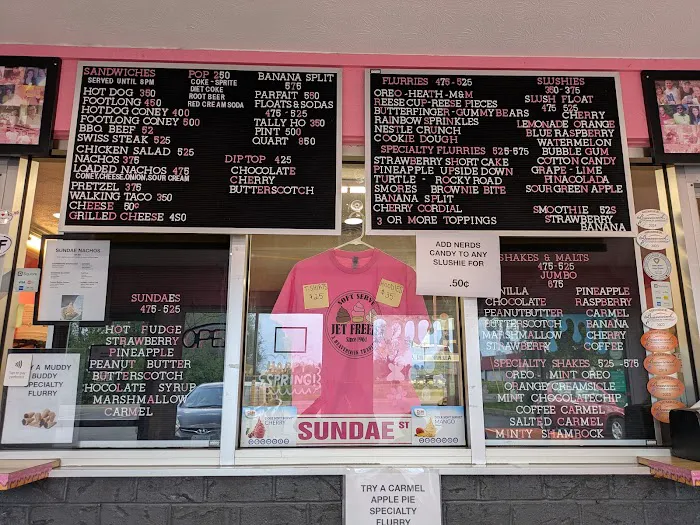 SANDWICHES
SERVED UNTIL 8PM
HOT DOG 350
FOOTLONG 450
HOTDOG CONEY 400
FOOTLONG CONEY 500
BBQ BEEF 52
SWISS STEAK 525
CHICKEN SALAD 525
NACHOS 375
LOADED NACHOS 475
CONEY,CHEESE,ONION,SOUR CREAM
PRETZEL 375
WALKING TACO 350
CHEESE 50¢
GRILLED CHEESE 450
POP 250
COKE - SPRITE
DIET COKE
ROOT BEER
RED CREAM SODA
BANANA SPLIT
575
PARFAIT 550
FLOATS & SODAS
475 - 525
TALLY HO 350
PINT 500
QUART 850
DIP TOP 425
CHOCOLATE
CHERRY
BUTTERSCOTCH
FLURRIES 475-525
OREO-HEATH-M&M
REESE CUP-REESE PIECES
BUTTERFINGER-GUMMY BEARS
RAINBOW SPRINKLES
NESTLE CRUNCH
COOKIE DOUGH
SPECIALTY FLURRIES 525-575
STRAWBERRY SHORT CAKE
PINEAPPLE UPSIDE DOWN
TURTLE - ROCKY ROAD
SMORES BROWNIE BITE
BANANA SPLIT
CHERRY CORDIAL
3 OR MORE TOPPINGS
SLUSHIES
350-375
SLUSH FLOAT
475 525
CHERRY
LEMONADE ORANGE
BLUE RASPBERRY
WATERMELON
BUBBLE GUM
COTTON CANDY
GRAPE - LIME
PINACOLADA
SOUR GREEN APPLE
SMOOTHIE 525
STRAWBERRY
BANANA
SUNDAE NACHOS
SUNDAES
475-525
HOT FUDGE
STRAWBERRY
PINEAPPLE
PEANUT BUTTER
BUTTERSCOTCH
HOCOLATE SYRUP
MARSHMALLOW
CARMEL
OPE
Y A MUDDY
BUDDY
SPECIALTY
FLURRY
$25
$35
SOFT SERVE
JET FREEZE
Since 1964
SPRING!
CHERRY
SUNDAE ST
MANGO
ADD NERDS
CANDY TO ANY
SLUSHIE FOR
.50¢
SHAKES & MALTS
475-525
JUMBO
675
NILLA
CHOCOLATE
PEANUTBUTTER
BUTTERSCOTCH
MARSHMALLOW
STRAWBERRY
PINEAPPLE
RASPBERRY
CARMEL
BANANA
CHERRY
COFFEE
SPECIALTY SHAKES 525-575
OREO - MINT OREO
ORANGE CREAMSICLE
MINT CHOCOLATECHIP
COFFEE CARMEL
SALTED CARMEL
MINTY SHAMROCK
TRY A CARMEL
APPLE PIE
SPECIALTY
FLURRY